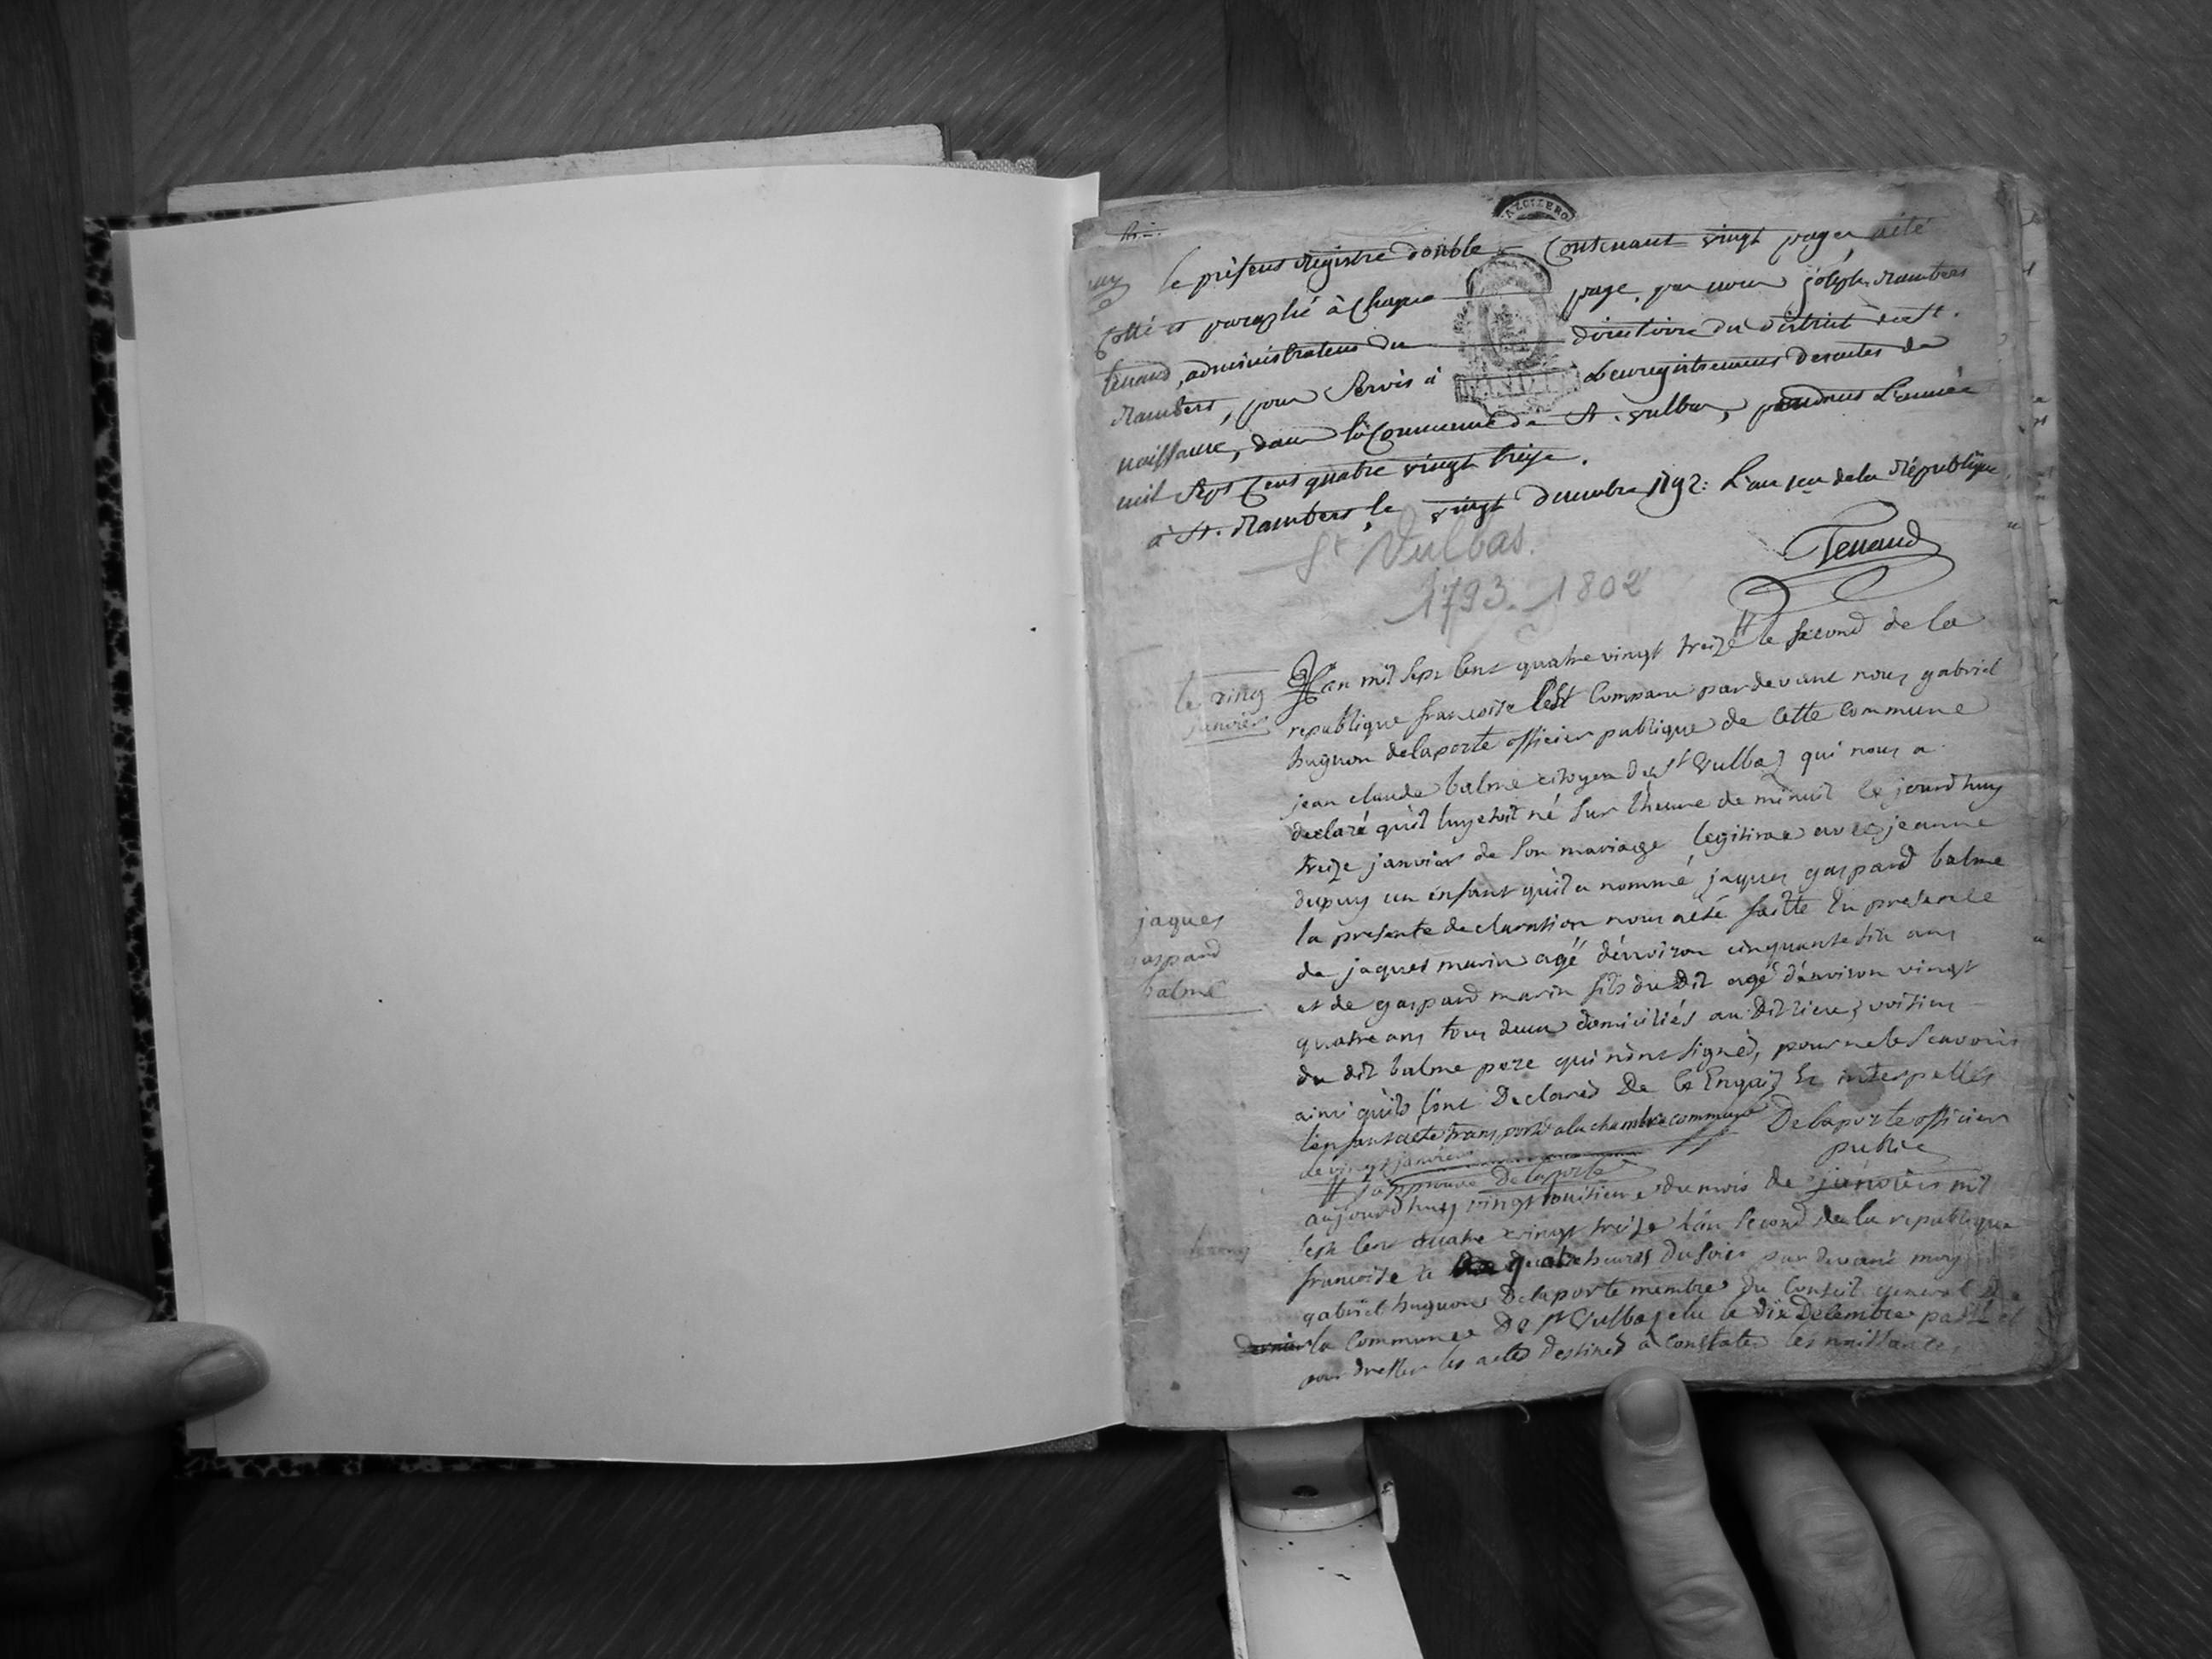 le présens Régistre double Contenant vingt pages, a été
Cotté et paraphé à Chaque page, par nous joseph Rambert
tenand, administrateur du directoire du district de St.
Rambert, pour Servir à L'enregistrement des actes de
naissance, dans la Commune de St. vulbas, pendant L'année
mil Sept Cens quatre vingt treize.
à St. Rambert, le vingt decembre 1792: L'an 1er de la République
Tenand
St Vulbas.
1793. 1802
le ving
janvier
L'an mil sept cent quatre vingt treize // le second de la
republique francoise C'est Comparu pardevant nous gabriel
hugnon delaporte officier publique de cette commune
jean claude balme citoyen de St Vulbas qui nous a
declaré qu'il luy etoit né sur l'heure de minuit ce jourd'huy
treize janvier de son mariage legitime avec jeanne
dupuy un enfant qu'il a nommé jaques gaspard balme
la presente declaration nous a été faitte En presence
de jaques marin agé d'environ cinquante six ans
et de gaspard marin fils du Dit agé d'environ vingt
quatre ans tous deux domiciliés au Dit lieu, voisins
du dit balme pere qui n'ont signés, pour ne le scavoir
ainsi qu'ils l'ont Declarés De ce Enquis et interpellés
l'enfant a été transporté a la chambre commune Delaporte officier
public
le vingt janvier
// j'approuve Delaporte
jaques
gaspard
balme
aujourd'huy vingt huitieme du mois de janvier mil
sept cent quatre vingt treize l'an second de la republique
francoise a quatre heures du soir par devant moy
gabriel hugnon Delaporte membre du Conseil general de
la commune De St Vulbas elu le dix Decembre passé
pour dresser les actes destinés a constater les naissances